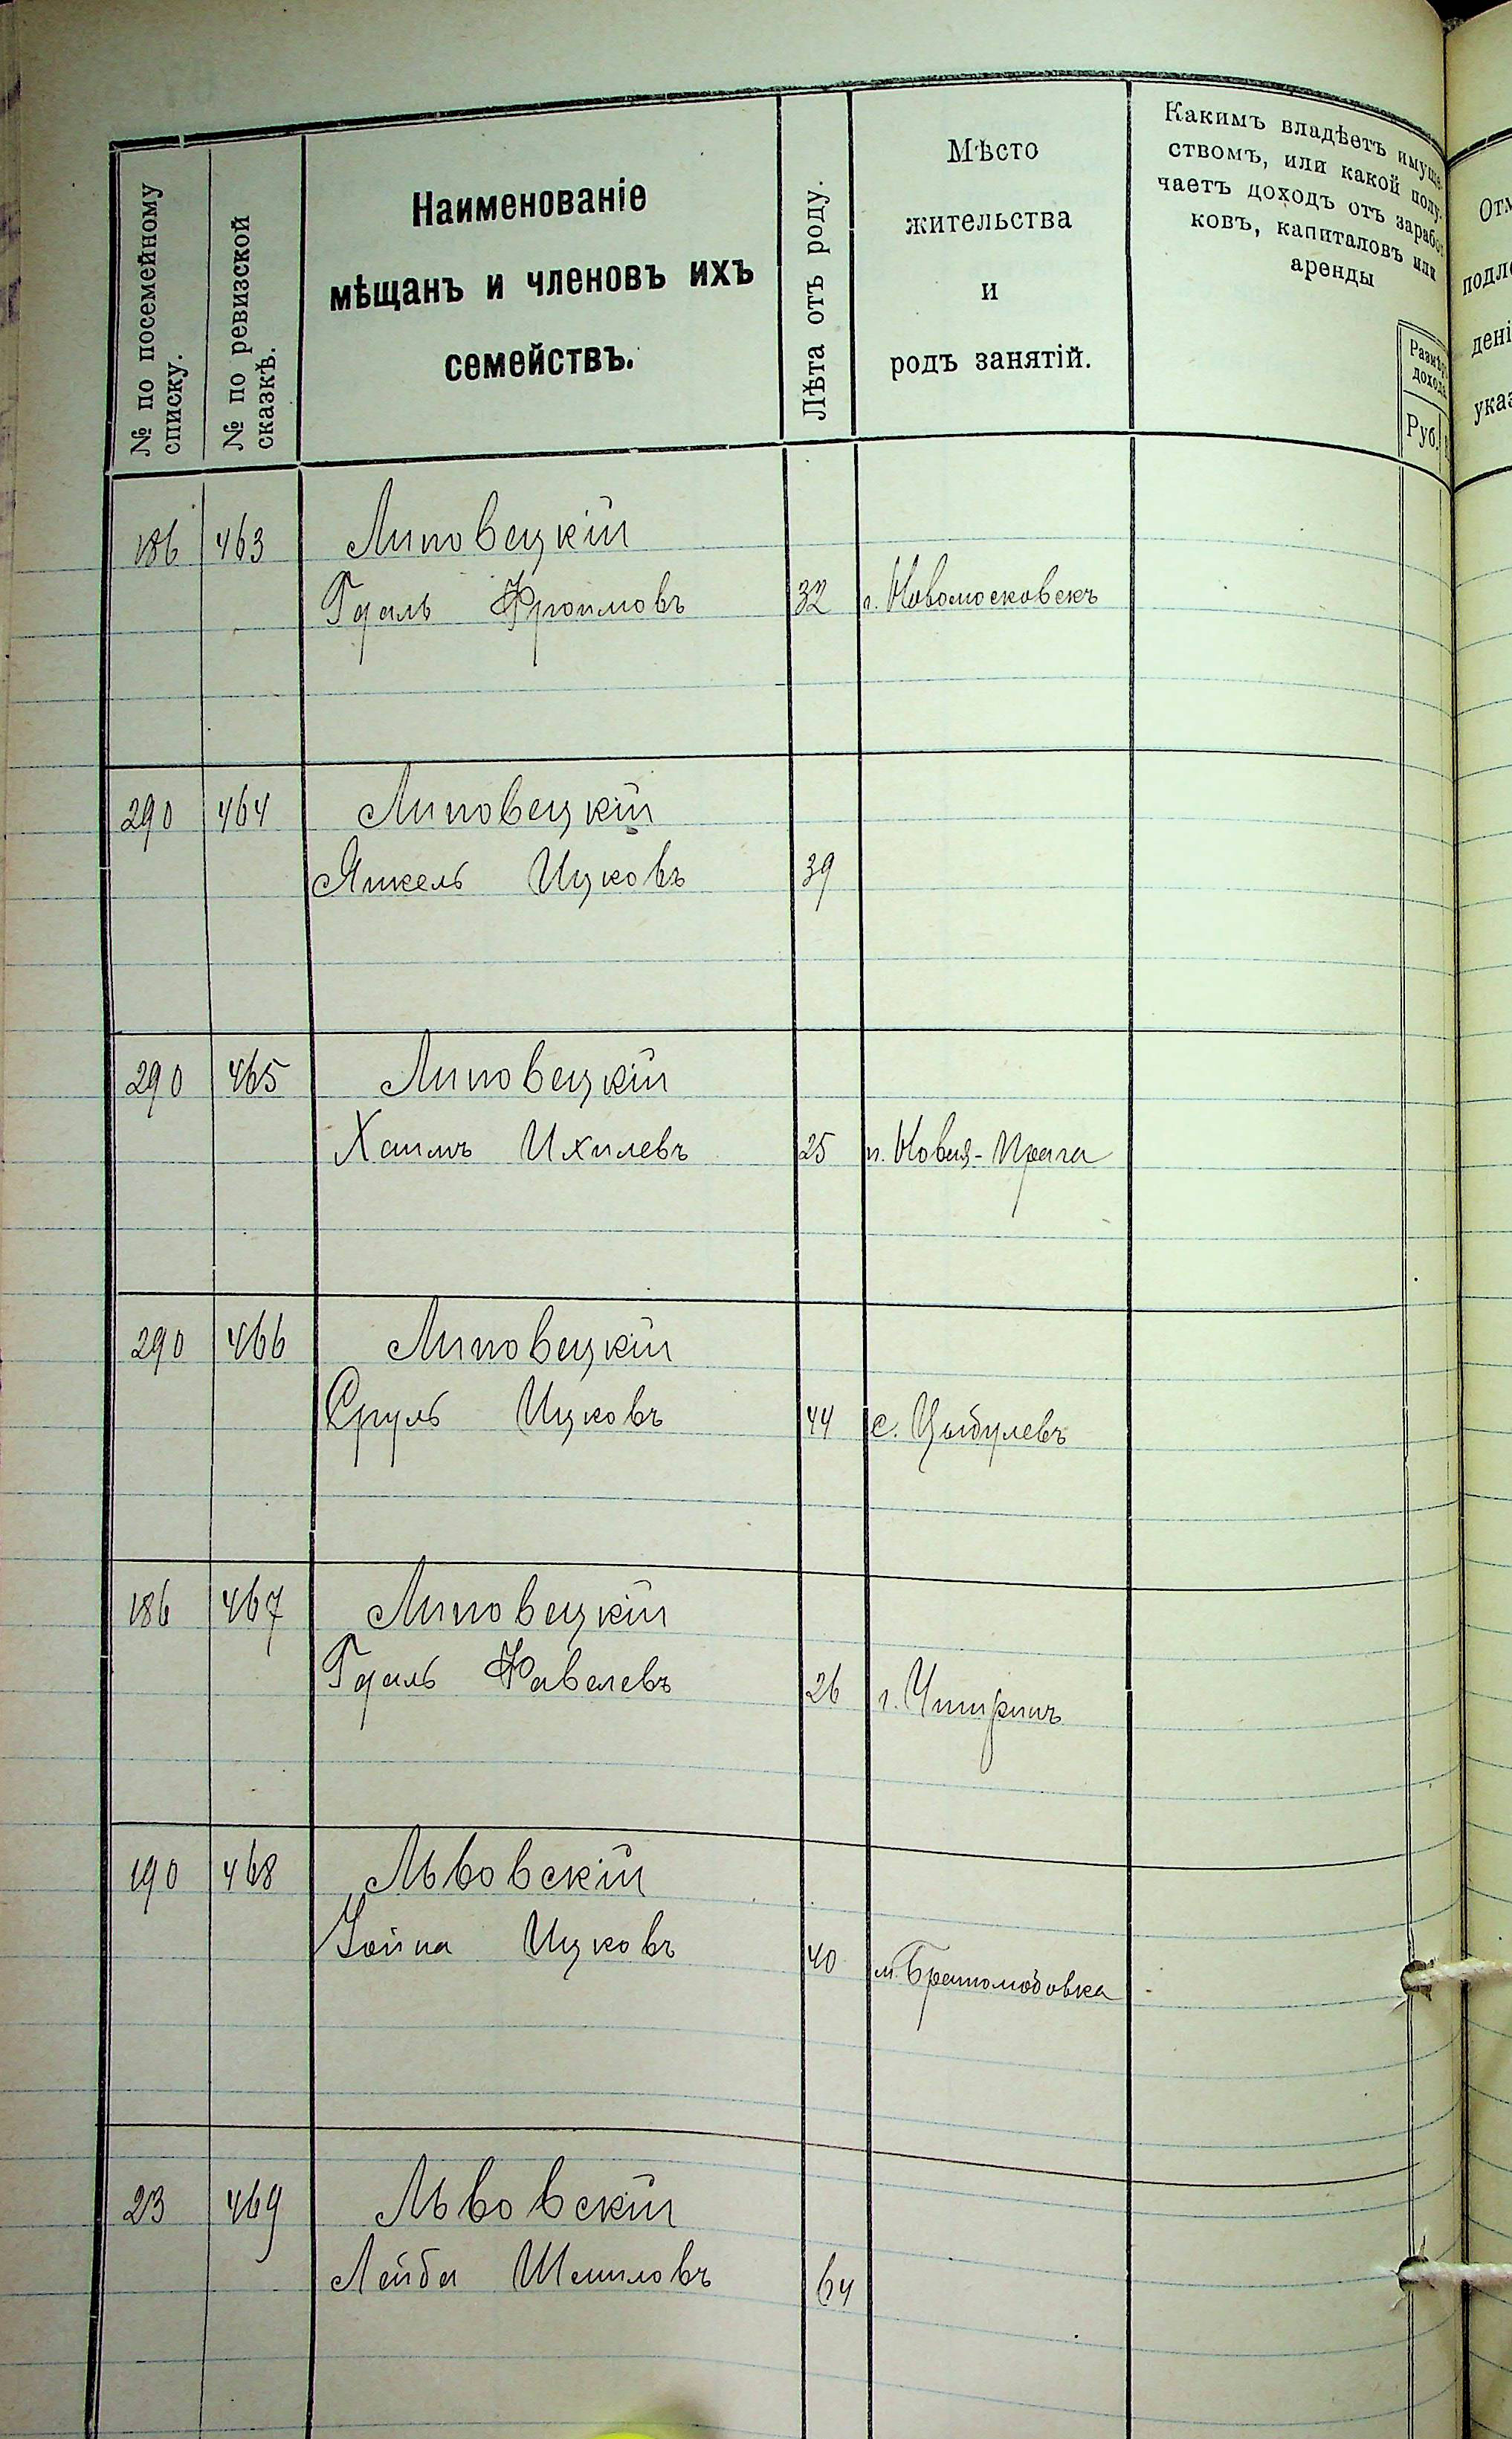 № по посемейному
списку.
№ по ревизской
сказкѣ.
Наименованіе
мѣщанъ и членовъ ихъ
семействъ.
Лѣта отъ роду.
Мѣсто
жительства
и
родъ занятій.
Какимъ владѣетъ имуще-
ствомъ, или какой полу-
чаетъ доходъ отъ заработ
ковъ, капиталовъ или
аренды
Размѣръ
дохода
Руб.
Отм
подле
дені
указ
186 463 Липовецкій
Гдаль Фроимовъ 32 г. Новомосковскъ
290 464 Липовецкій
Янкель Ицковъ 39
290 465 Липовецкій
Хаимъ Ихилевъ 25 п. Новая-Прага
290 466 Липовецкій
Сруль Ицковъ 44 с. Цыбулевъ
186 467 Липовецкій
Гдаль Фавелевъ 26 г. Чигиринъ
190 468 Львовскій
Хойна Ицковъ 40 м. Братолюбовка
23 469 Львовскій
Лейба Шмиловъ 64